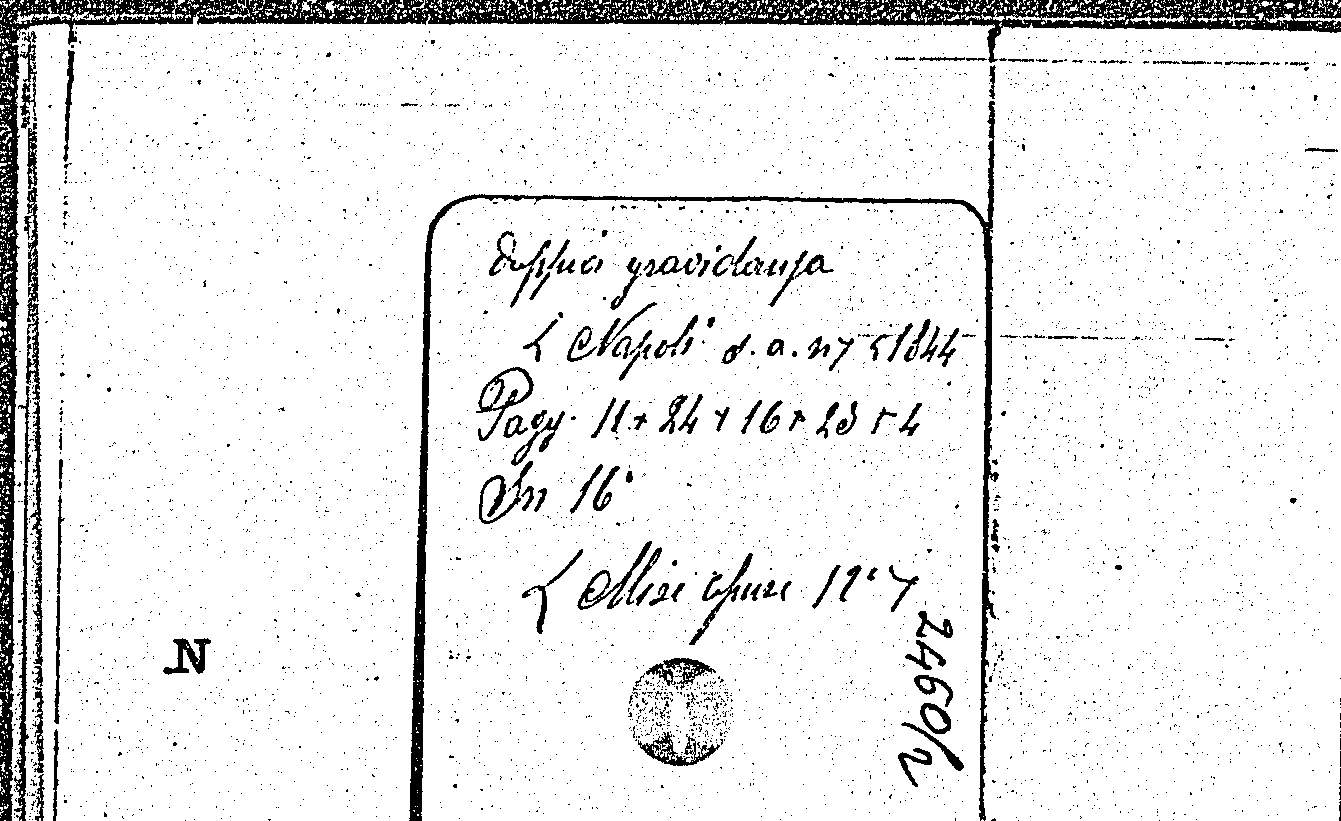 doppia gravidanza
Napoli s. a. ny 1844
Pagg. 11 + 24 + 16 + 23 + 4
In 16°
Misc opusc 12° 7
2460/2
N